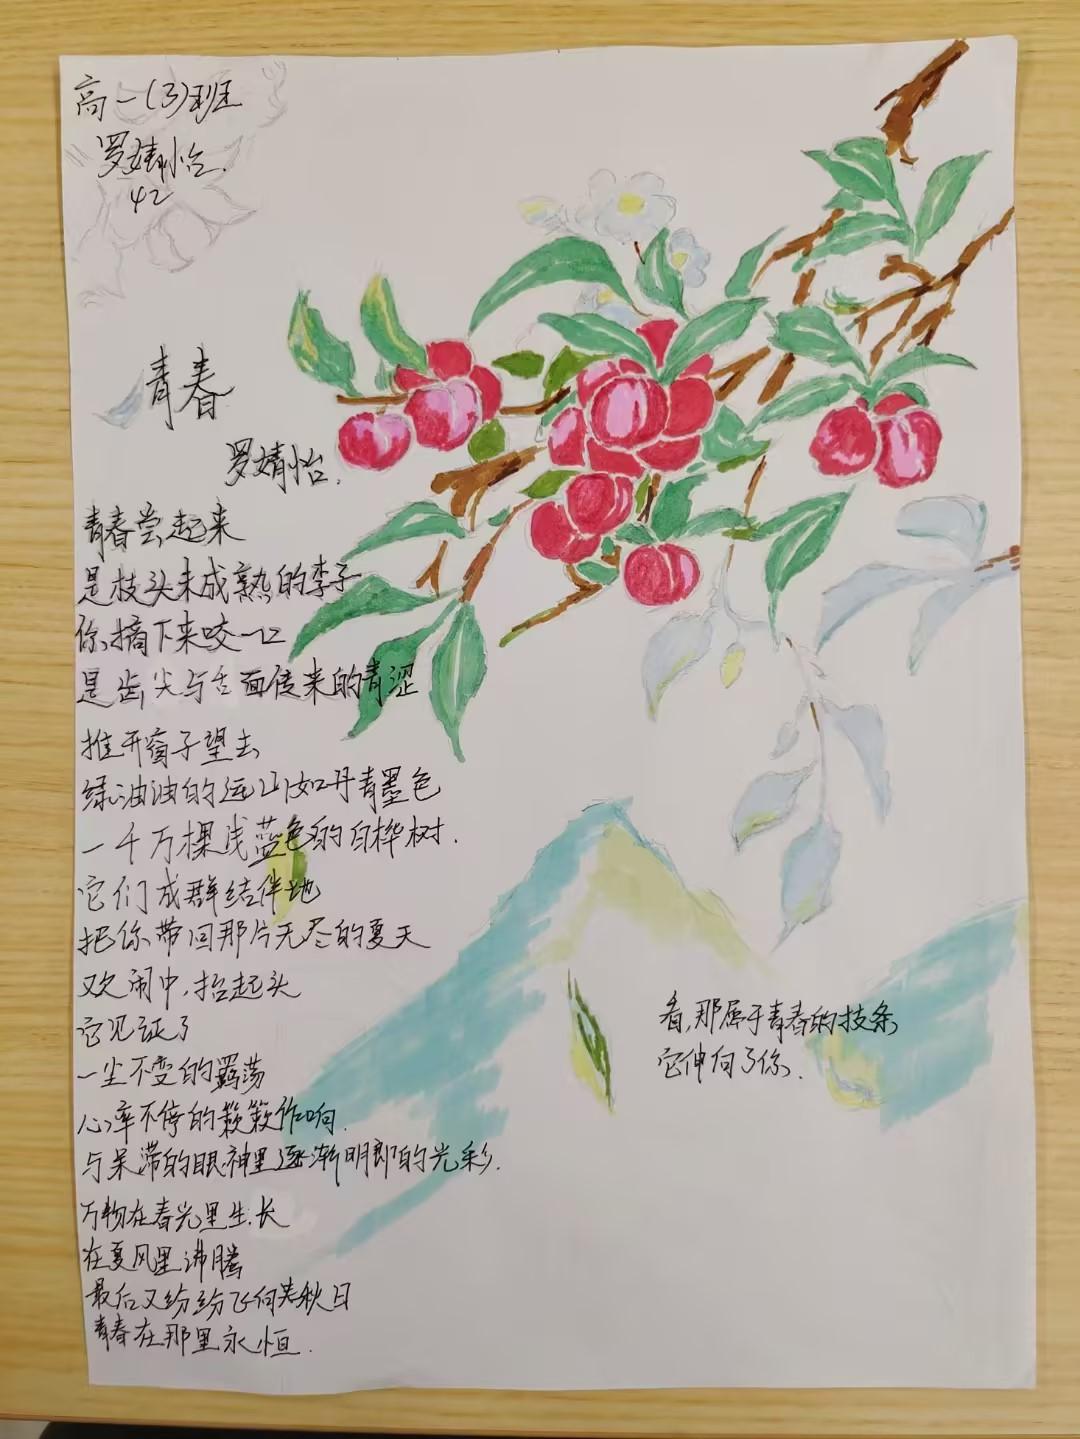 高一(3)班
罗婧怡.
42
青春
罗婧怡.
青春尝起来
是枝头未成熟的李子
你摘下来咬一口
是齿尖与舌面传来的青涩
推开窗子望去
绿油油的远山如丹青墨色
一千万棵浅蓝色的白桦树.
它们成群结伴地
把你带回那片无尽的夏天
欢闹中,抬起头
它见证了
一尘不变的羁荡
心率不停的簌簌作响.
与呆滞的眼神里逐渐明郎的光彩.
万物在春光里生长
在夏风里沸腾
最后又纷纷飞向秋日
青春在那里永恒.
看,那属于青春的枝条,
它伸向了你.